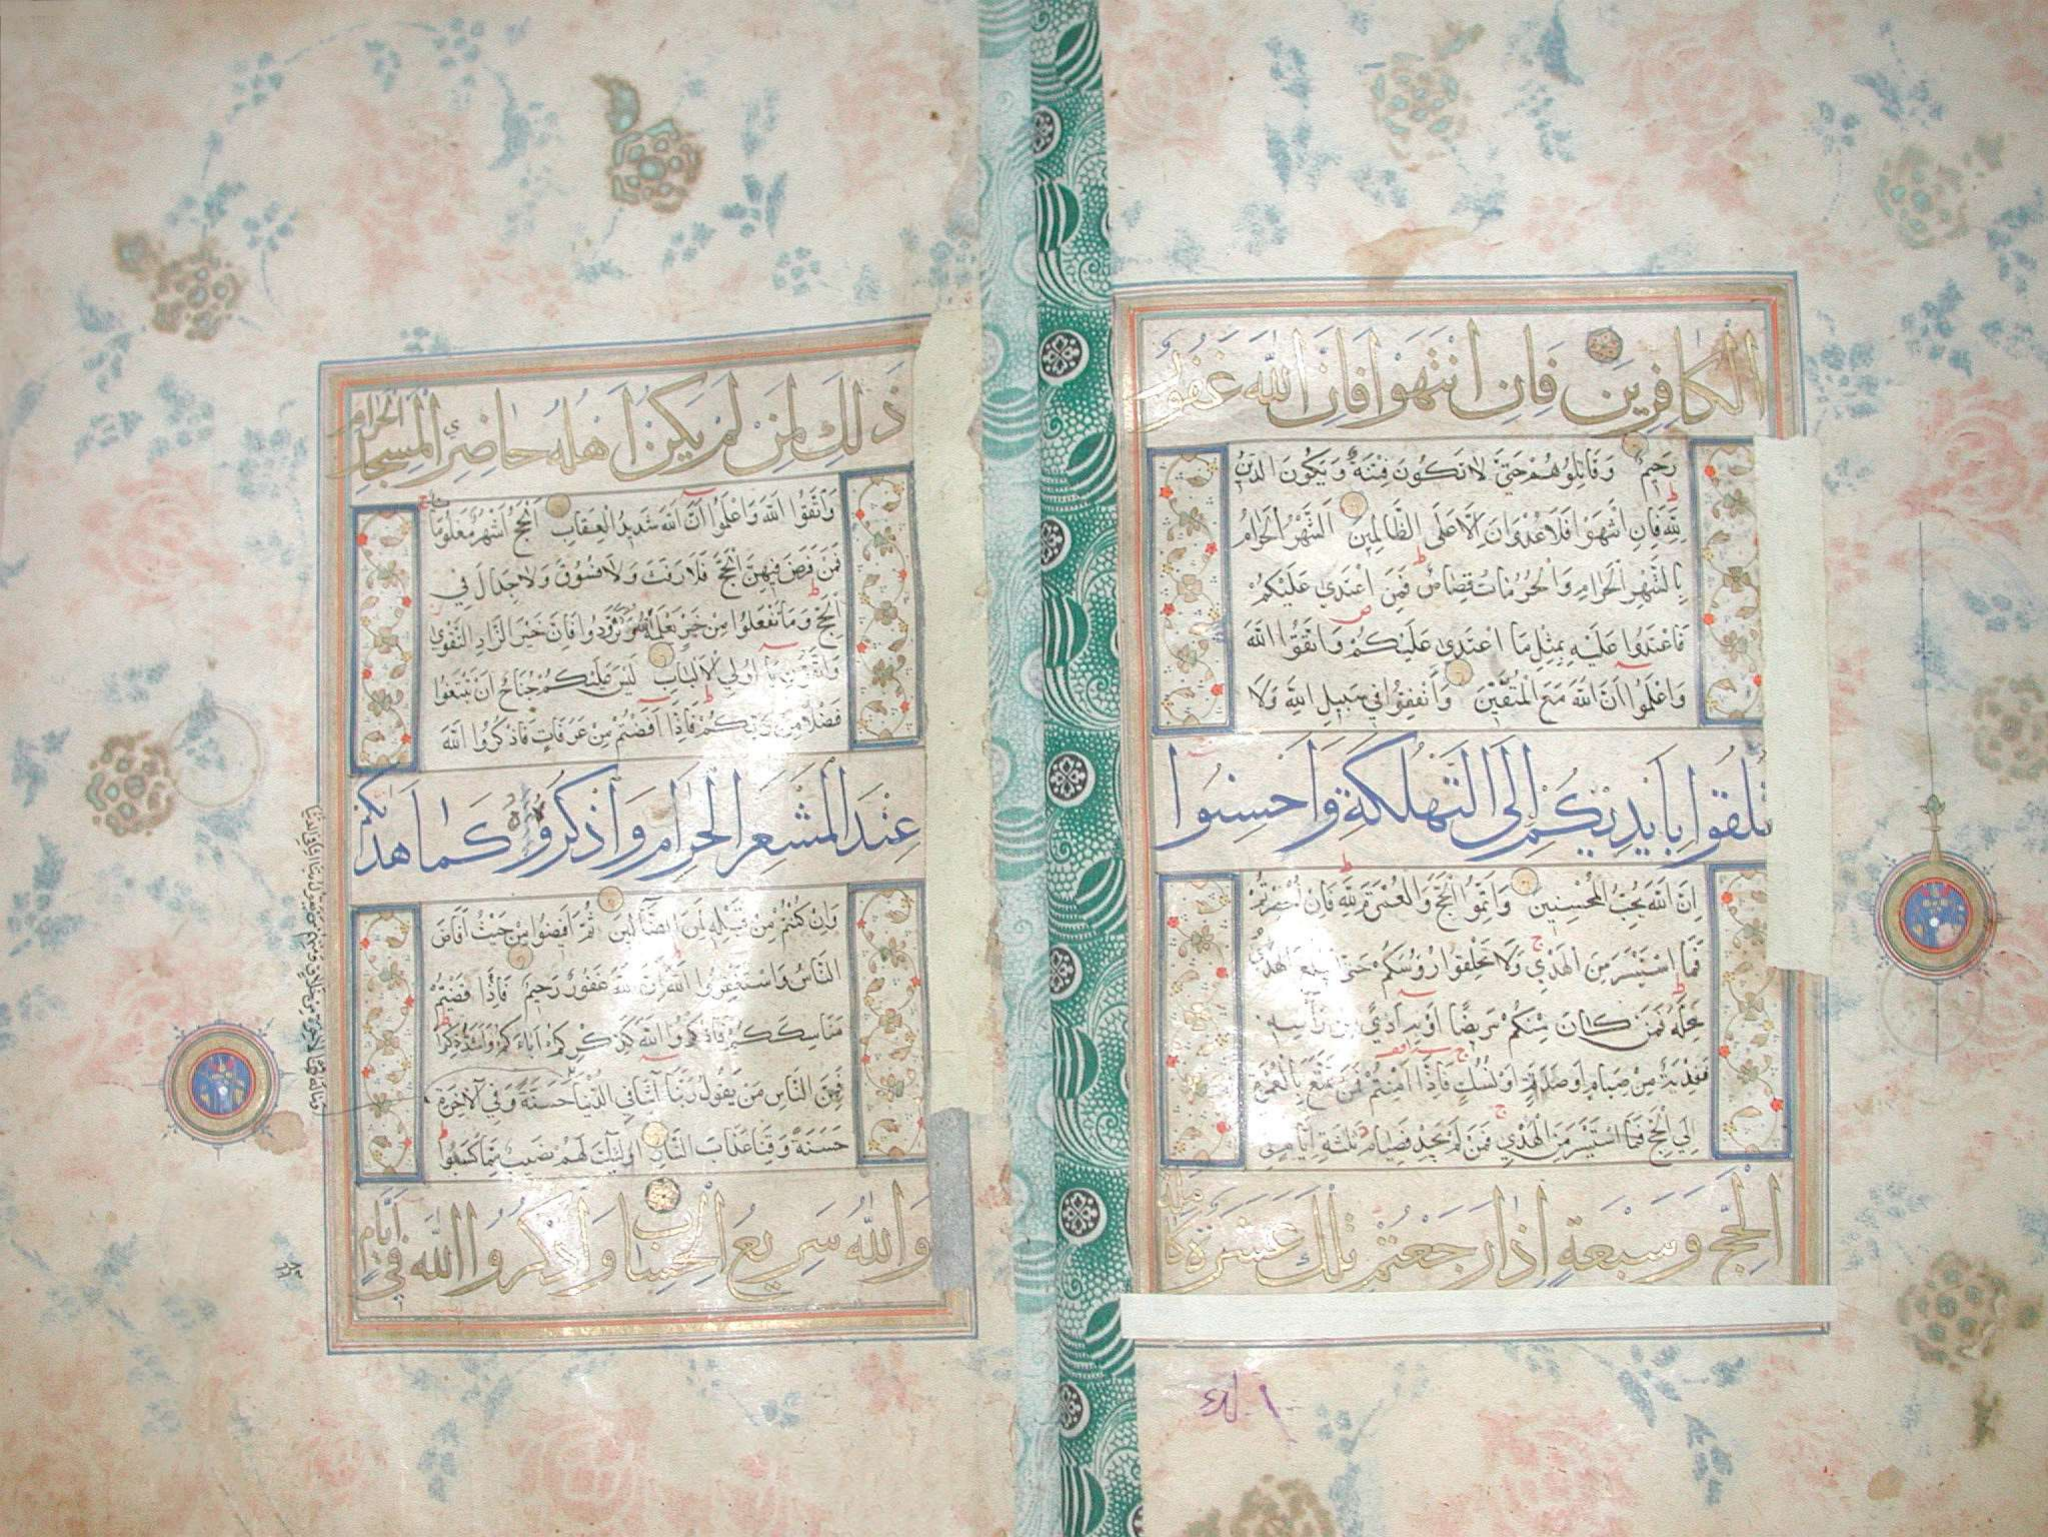 الكافرين فان انتهوا فان الله غفور
رحيم وقاتلوهم حتى لا تكون فتنة ويكون الدين
لله فان انتهوا فلا عدوان الا على الظالمين الشهر الحرام
بالشهر الحرام والحرمات قصاص فمن اعتدي عليكم
فاعتدوا عليه بمثل ما اعتدي عليكم واتقوا الله
واعلموا ان الله مع المتقين وانفقوا في سبيل الله ولا
تلقوا بايديكم الى التهلكة واحسنوا
ان الله يحب المحسنين واتموا الحج والعمرة لله فان احصرتم
فما استيسر من الهدي ولا تحلقوا رؤسكم حتى يبلغ الهدي
محله فمن كان منكم مريضا او به اذي من رأسه
ففدية من صيام او صدقة او نسك فاذا امنتم فمن تمتع بالعمرة
الي الحج فما استيسر من الهدي فمن لم يجد فصيام ثلثة ايام في
الحج وسبعة اذا رجعتم تلك عشرة كاملة
ذلك لمن لم يكن اهله حاضري المسجد الحرام
واتقوا الله واعلموا ان الله شديد العقاب الحج اشهر معلوما
فمن فرض فيهن الحج فلا رفث ولا فسوق ولا جدال في
الحج وما تفعلوا من خير يعلمه الله وتزودوا فان خير الزاد التقوى
واتقون يا اولي الالباب ليس عليكم جناح ان تبتغوا
فضلا من ربكم فاذا افضتم من عرفات فاذكروا الله
عند المشعر الحرام واذكروه كما هداكم
وان كنتم من قبله لمن الضالين ثم افيضوا من حيث افاض
الناس واستغفروا الله ان الله غفور رحيم فاذا قضيتم
مناسككم فاذكروا الله كذكركم اباءكم او اشد ذكرا
فمن الناس من يقول ربنا آتنا في الدنيا حسنة وفي الآخرة
حسنة وقنا عذاب النار اولئك لهم نصيب مما كسبوا
والله سريع الحساب واذكروا الله في ايام